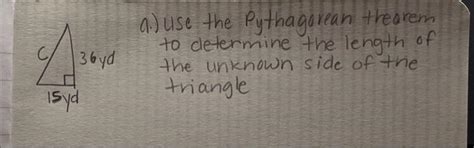 a.) use the Pythagorean theorem
to determine the length of
the unknown side of the
triangle
C
36yd
15yd